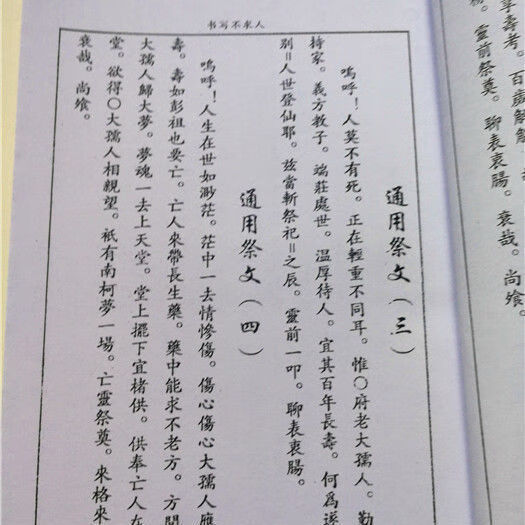 书写不求人
通用祭文（三）
嗚呼！人莫不有死。正在輕重不同耳。惟○府老大孺人。勤
持家。義方教子。端莊處世。温厚待人。宜其百年長壽。何爲遂
別=人世登仙耶。兹當斬祭祀=之辰。靈前一叩。聊表衷腸。
通用祭文（四）
嗚呼！人生在世如渺茫。茫中一去情慘傷。傷心傷心大孺人應
壽。壽如彭祖也要亡。亡人來帶長生藥。藥中能求不老方。方開
大孺人歸大夢。夢魂一去上天堂。堂上擺下宜楮供。供奉亡人在
堂。欲得○大孺人相親望。衹有南柯夢一場。亡靈祭奠。來格來
哀哉。尚飨。
享壽考。百歲解
靈前祭奠。聊表衷腸。哀哉。尚飨。